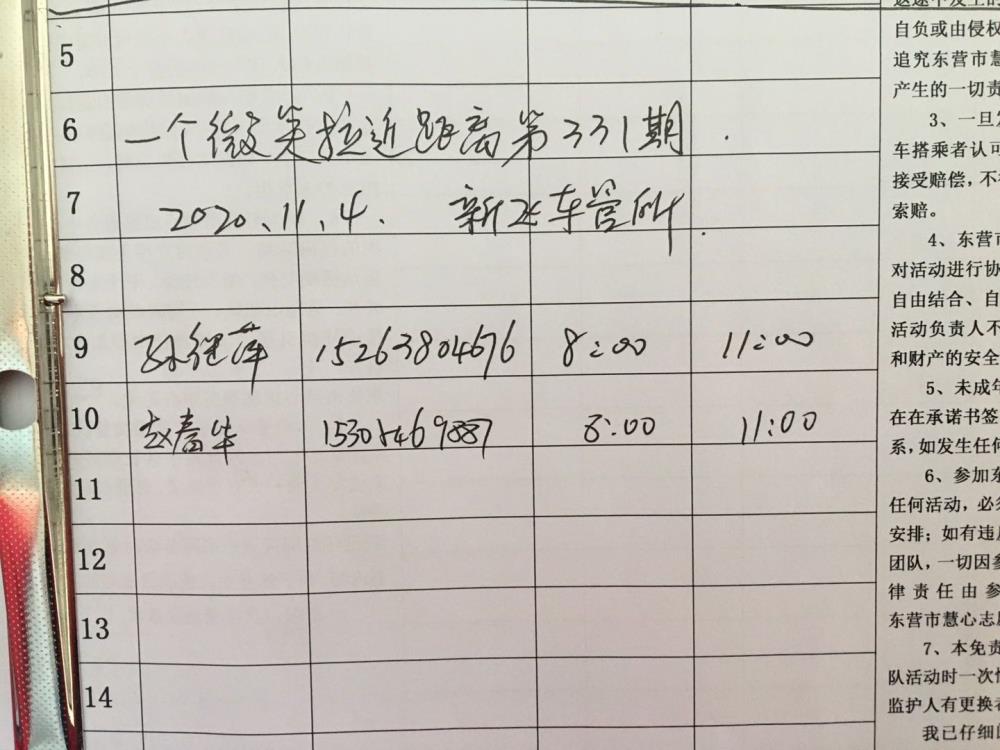 5
6 一个微笑拉近距离第331期.
7 2020、11、4. 新 车管所.
8
9 孙继萍 15263804676 8:00 11:00
10 赵春华 15305469887 8:00 11:00
11
12
13
14
自负或由侵权
追究东营市慧
产生的一切责
3、一旦发
车搭乘者认可
接受赔偿,不
索赔。
4、东营市
对活动进行协
自由结合、自
活动负责人不
和财产的安全
5、未成年
在在承诺书签
系,如发生任何
6、参加东
任何活动,必须
安排;如有违反
团队,一切因参
律责任由参
东营市慧心志愿
7、本免责
队活动时一次性
监护人有更换者
我已仔细阅